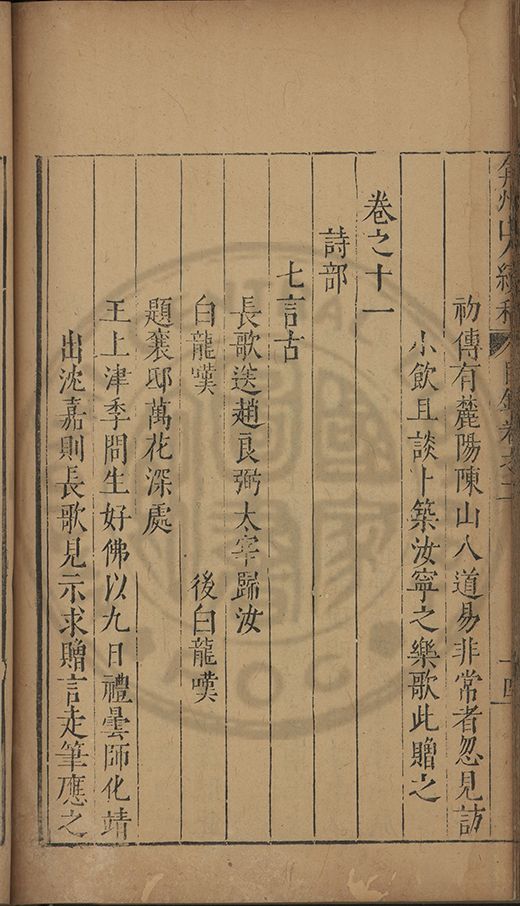 初傳有麓陽陳山人道易非常者忽見訪
小飲且談卜築汝寧之樂歌此贈之
卷之十一
詩部
七言古
長歌送趙良弼太宰歸汝
白龍嘆 後白龍嘆
題裹邸萬花深處
王上津季問生好佛以九日禮曇師化靖
出沈嘉則長歌見示求贈言走筆應之